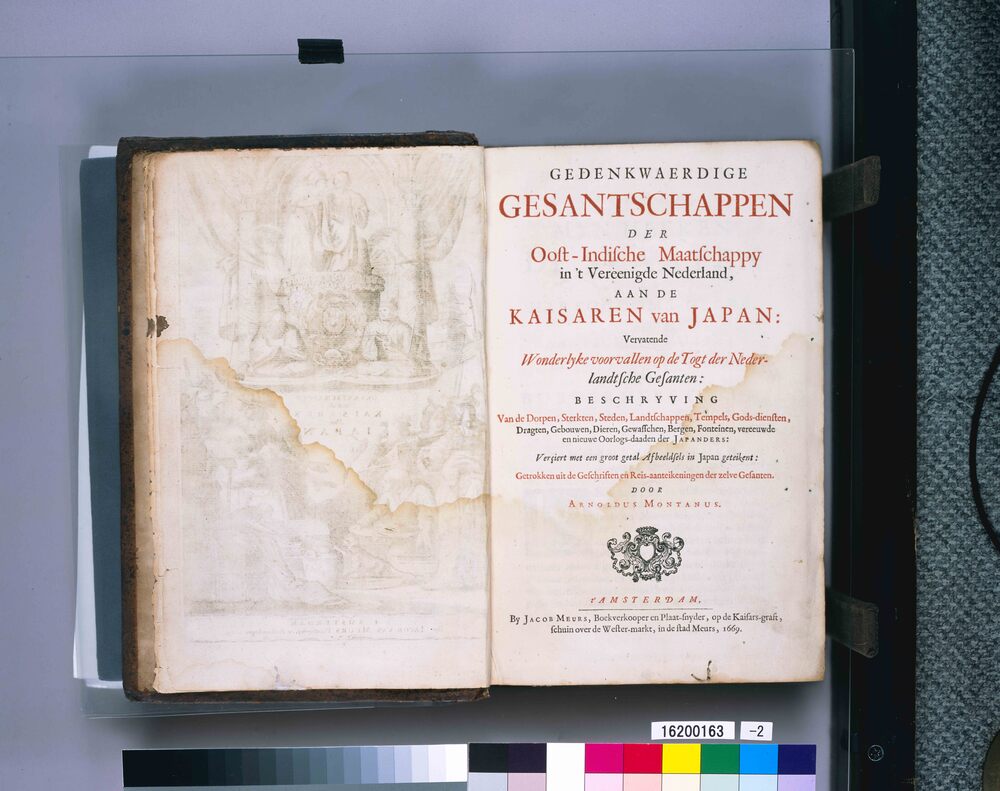 GEDENKWAERDIGE
GESANTSCHAPPEN
DER
Ooſt-Indiſche Maatſchappy
in 't Vereenigde Nederland,
AAN DE
KAISAREN van JAPAN:
Vervatende
Wonderlyke voorvallen op de Togt der Neder-
landtſche Geſanten:
BESCHRYVING
Van de Dorpen, Sterkten, Steden, Landtſchappen, Tempels, Gods-dienſten,
Dragten, Gebouwen, Dieren, Gewaſſchen, Bergen, Fonteinen, vereeuwde
en nieuwe Oorlogs-daaden der JAPANDERS:
Verçiert met een groot getal Afbeeldſels in Japan geteikent:
Getrokken uit de Geſchriften en Reis-aanteikeningen der zelve Geſanten.
DOOR
ARNOLDUS MONTANUS.
t'AMSTERDAM,
By JACOB MEURS, Boekverkooper en Plaat-ſnyder, op de Kaiſars-graft,
ſchuin over de Weſter-markt, in de ſtad Meurs, 1669.
16200163 -2